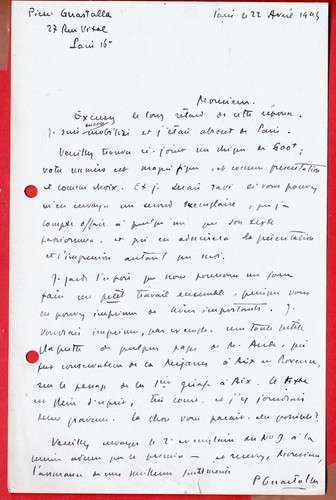 Pierre Guastalla Paris le 22 Avril 1945
27 Rue Vital
Paris 16e
Monsieur.
Excusez le long retard de cette réponse.
Je suis encore mobilisé et j'étais absent de Paris.
Veuillez trouver ci-joint un chèque de 600f;
votre numéro est magnifique, et comme présentation
et comme choix. Et je serais ravi si vous pouvez
m'en envoyer un second exemplaire, que je
compte offrir à quelqu'un que son texte
passionnera, et qui en admirera la présentation
et l'impression autant que moi.
Je garde l'espoir que nous pourrons un jour
faire un petit travail ensemble, puisque vous
ne pouvez imprimer de livres importants. Je
voudrais imprimer, par exemple, une toute petite
plaquette de quelques pages de
fut conservateur de la Méjanes à Aix en Provence,
sur le passage de la à Aix. Le texte
est plein d'esprit, très court, et j'y joindrais
deux gravures. La chose vous paraît-elle possible?
Veuillez envoyer le 2e exemplaire du No 9 à la
même adresse que le premier — et recevez, Monsieur,
l'assurance de mes meilleurs sentiments
P Guastalla